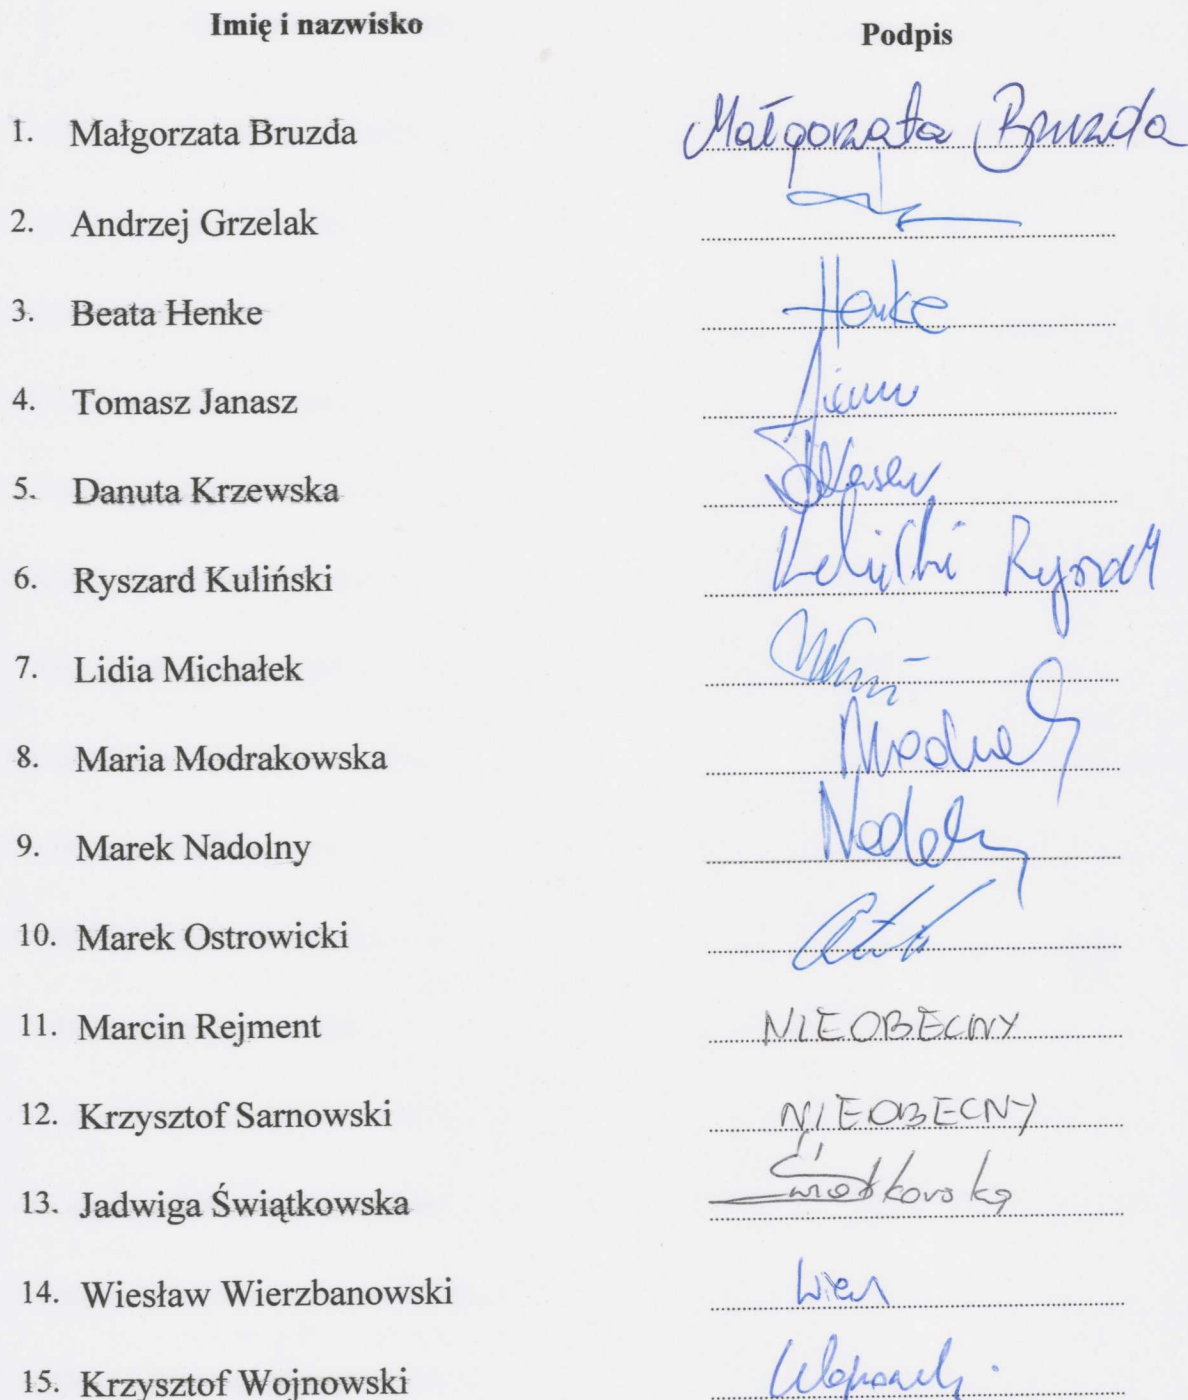 Imię i nazwisko Podpis
1. Małgorzata Bruzda Małgorzata Bruzda
2. Andrzej Grzelak
3. Beata Henke Henke
4. Tomasz Janasz
5. Danuta Krzewska
6. Ryszard Kuliński Kuliński Ryszard
7. Lidia Michałek
8. Maria Modrakowska
9. Marek Nadolny Nadolny
10. Marek Ostrowicki
11. Marcin Rejment NIEOBECNY
12. Krzysztof Sarnowski NIEOBECNY
13. Jadwiga Świątkowska Świątkowska
14. Wiesław Wierzbanowski
15. Krzysztof Wojnowski